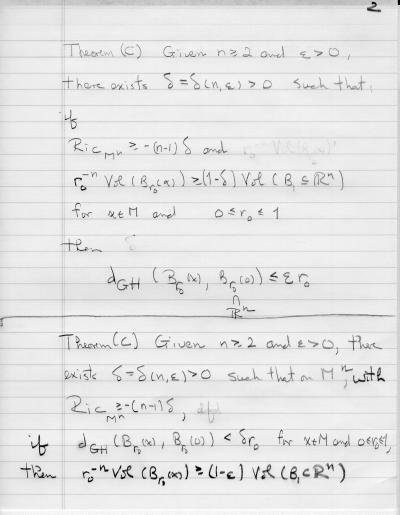 2
Theorem (C) Given n ≥ 2 and ε > 0,
there exists δ = δ(n, ε) > 0 such that,
if
Ric_{M^n} ≥ -(n-1) δ and
r_0^{-n} Vol (B_{r_0}(x)) ≥ (1-δ) Vol (B_1 ⊆ ℝ^n)
for x ∈ M and 0 ≤ r_0 ≤ 1
then
d_{GH} (B_{r_0}(x), B_{r_0}(0)) ≤ ε r_0
∩
ℝ^n
Theorem (C) Given n ≥ 2 and ε > 0, there
exists δ = δ(n, ε) > 0 such that on M^n, with
Ric_{M^n} ≥ -(n-1) δ,
if d_{GH} (B_{r_0}(x), B_{r_0}(0)) < δ r_0 for x ∈ M and 0 ≤ r_0 ≤ 1,
then r_0^{-n} Vol (B_{r_0}(x)) ≥ (1-ε) Vol (B_1 ⊂ ℝ^n)